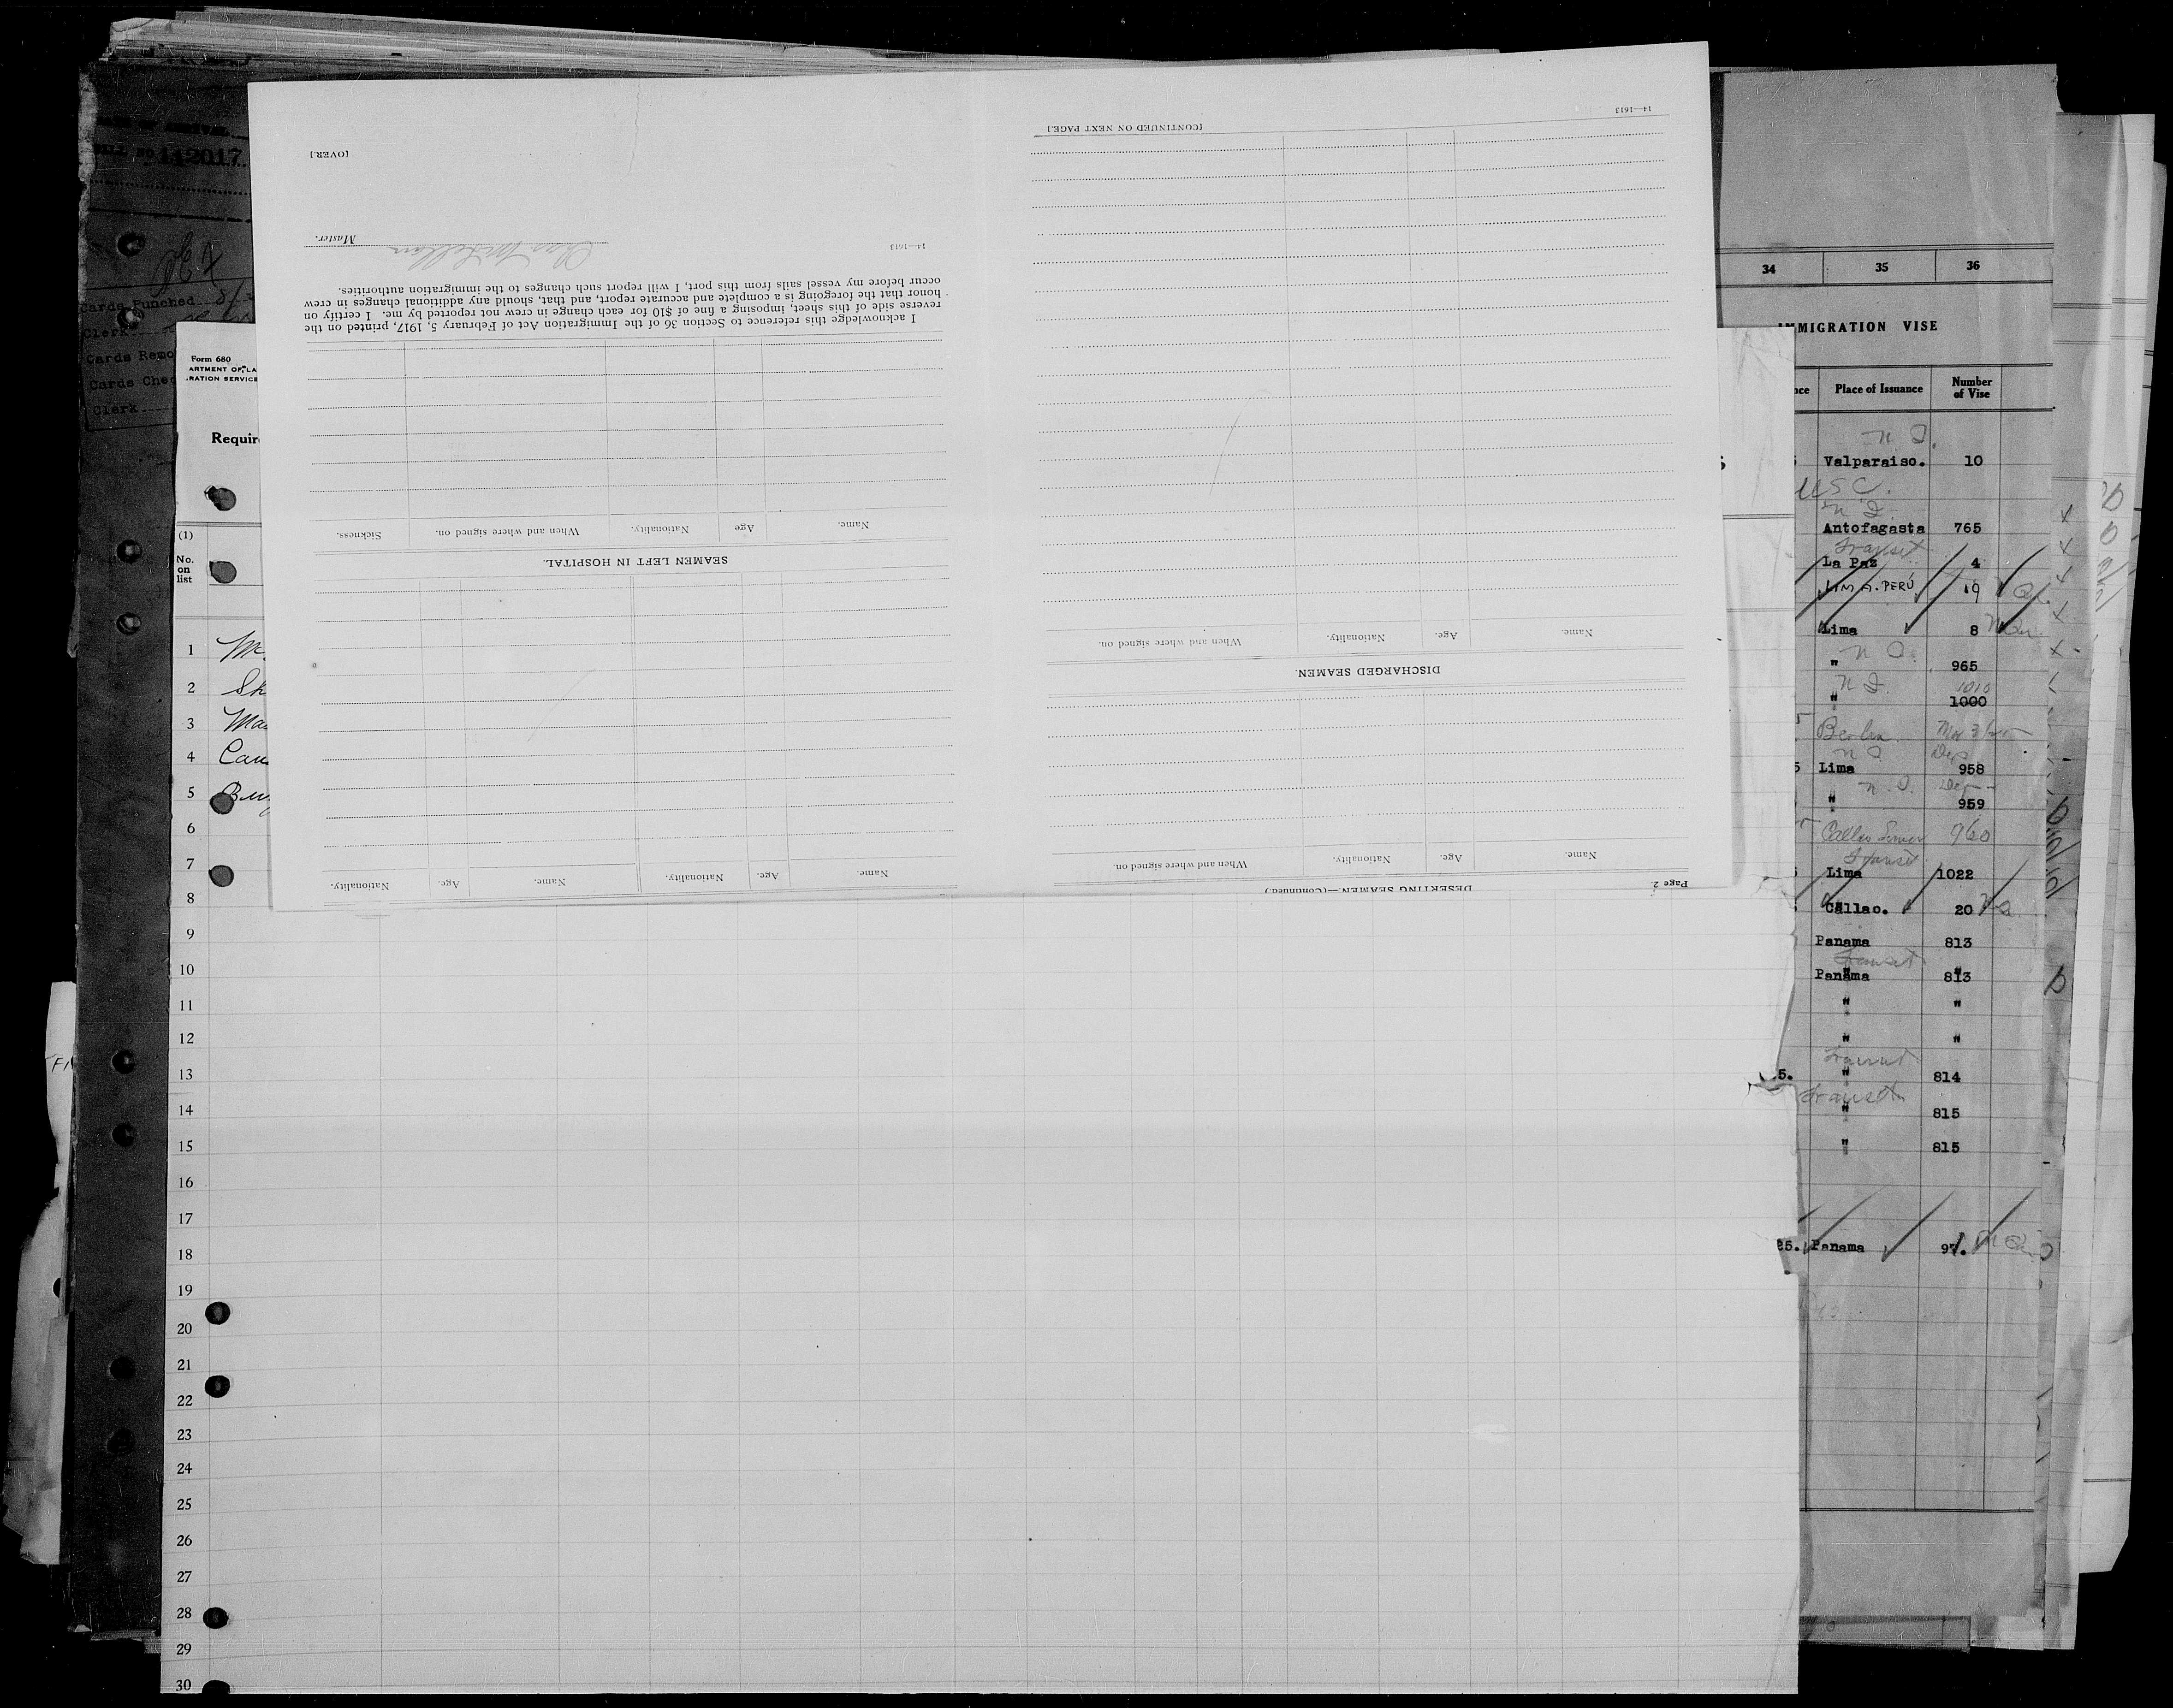 14—1613
[CONTINUED ON NEXT PAGE.]
Name.
Age.
Nationality.
When and where signed on.
DISCHARGED SEAMEN.
Name.
Age.
Nationality.
When and where signed on.
DESERTING SEAMEN.—(Continued.)
Page 2
[OVER.]
Master.
14—1613
I acknowledge this reference to Section 36 of the Immigration Act of February 5, 1917, printed on the
reverse side of this sheet, imposing a fine of $10 for each change in crew not reported by me. I certify on
honor that the foregoing is a complete and accurate report, and that, should any additional changes in crew
occur before my vessel sails from this port, I will report such changes to the immigration authorities.
Name.
Age
Nationality.
When and where signed on.
Sickness.
SEAMEN LEFT IN HOSPITAL.
Name.
Age.
Nationality.
Name.
Age.
Nationality.
142017
Cards Punched
Clerk
Cards Remo
Cards Chec
Clerk
Form 680
ARTMENT OF LA
RATION SERVICE
Requir
(1)
No.
on
list
1
2 Sk
3 Mas
4 Cam
5
6
7
8
9
10
11
12
13
14
15
16
17
18
19
20
21
22
23
24
25
26
27
28
29
30
34 35 36
IMMIGRATION VISE
nce Place of Issuance Number of Vise
Valparaiso. 10
USC.
Antofagasta 765
Transit
La Paz 4
LIMA. PERÚ 19
Lima 8
" 965
1010
" 1000
Berlin
Lima 958
" 959
960
Transit
Lima 1022
Callao. 20
Panama 813
Transit
Panama 813
" "
" "
Transit
5. " 814
Transit
" 815
" 815
25. Panama